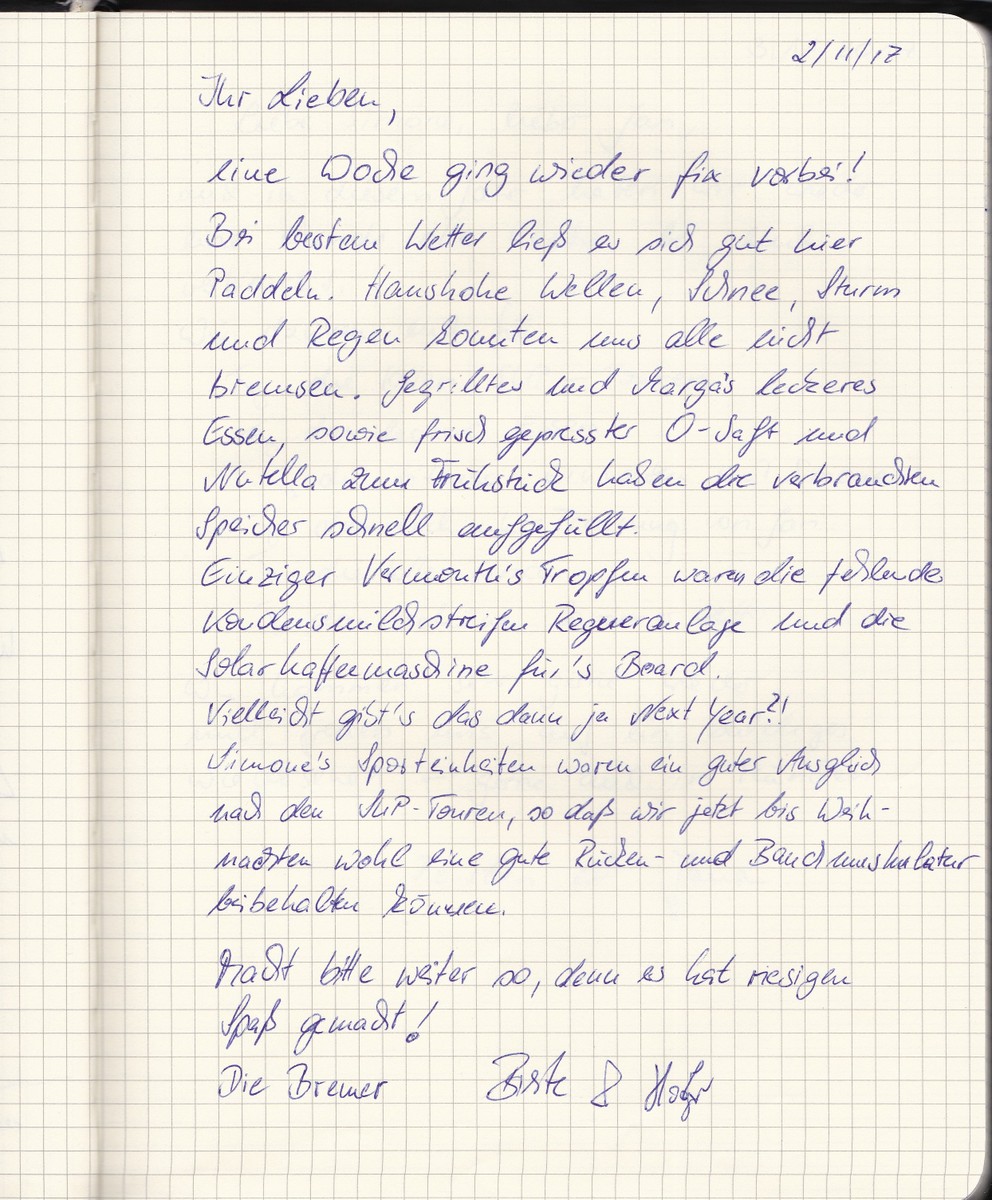 2/11/17
Ihr Lieben,
eine Woche ging wieder fix vorbei!
Bei bestem Wetter ließ es sich gut hier
Paddeln. Haushohe Wellen, Schnee, Sturm
und Regen konnten uns alle nicht
bremsen. Gegrilltes und Marga's leckeres
Essen, sowie frisch gepresster O-Saft und
Nutella zum Frühstück haben die verbrauchten
Speicher schnell aufgefüllt.
Einziger Vermouth's Tropfen waren die fehlende
Kondensmilchstreifen Regneranlage und die
Solarkaffeemaschine für's Board.
Vielleicht gibt's das dann ja Next Year?!
Simone's Sporteinheiten waren ein guter Ausglich
nach den SUP-Touren, so daß wir jetzt bis Weih-
nachten wohl eine gute Rücken- und Bauchmuskulatur
beibehalten können.
Macht bitte weiter so, denn es hat riesigen
Spaß gemacht!
Die Bremer & Holger